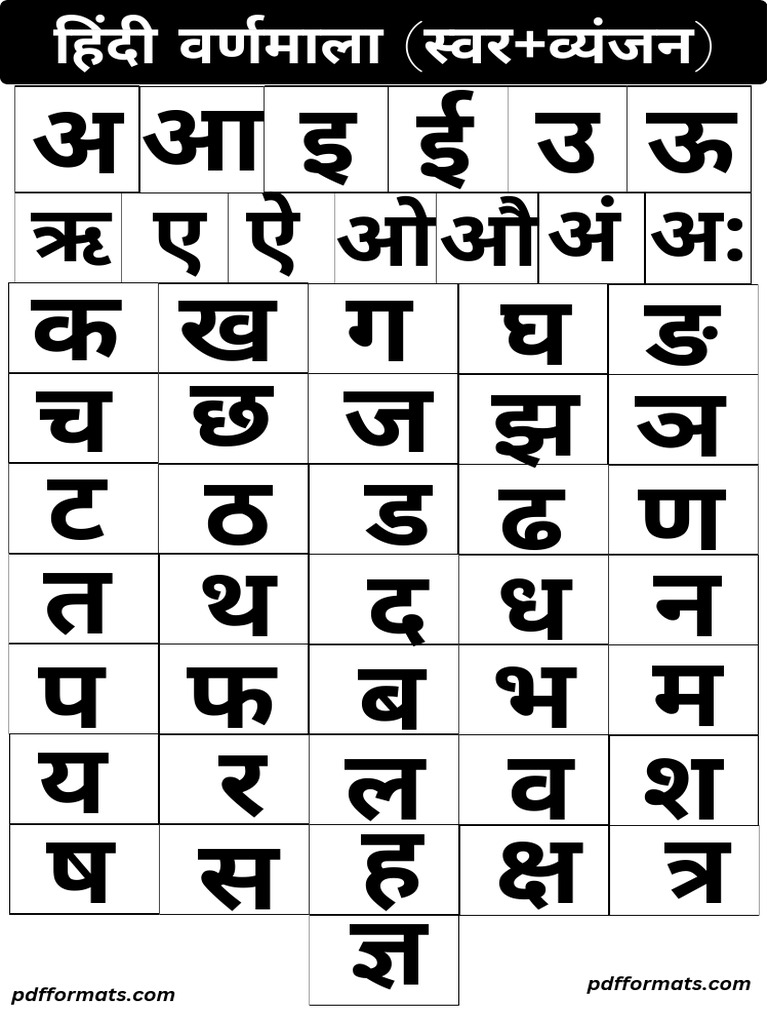 हिंदी वर्णमाला (स्वर+व्यंजन)
अ आ इ ई उ ऊ
ऋ ए ऐ ओ औ अं अः
क ख ग घ ङ
च छ ज झ ञ
ट ठ ड ढ ण
त थ द ध न
प फ ब भ म
य र ल व श
ष स ह क्ष त्र
ज्ञ
pdfformats.com pdfformats.com